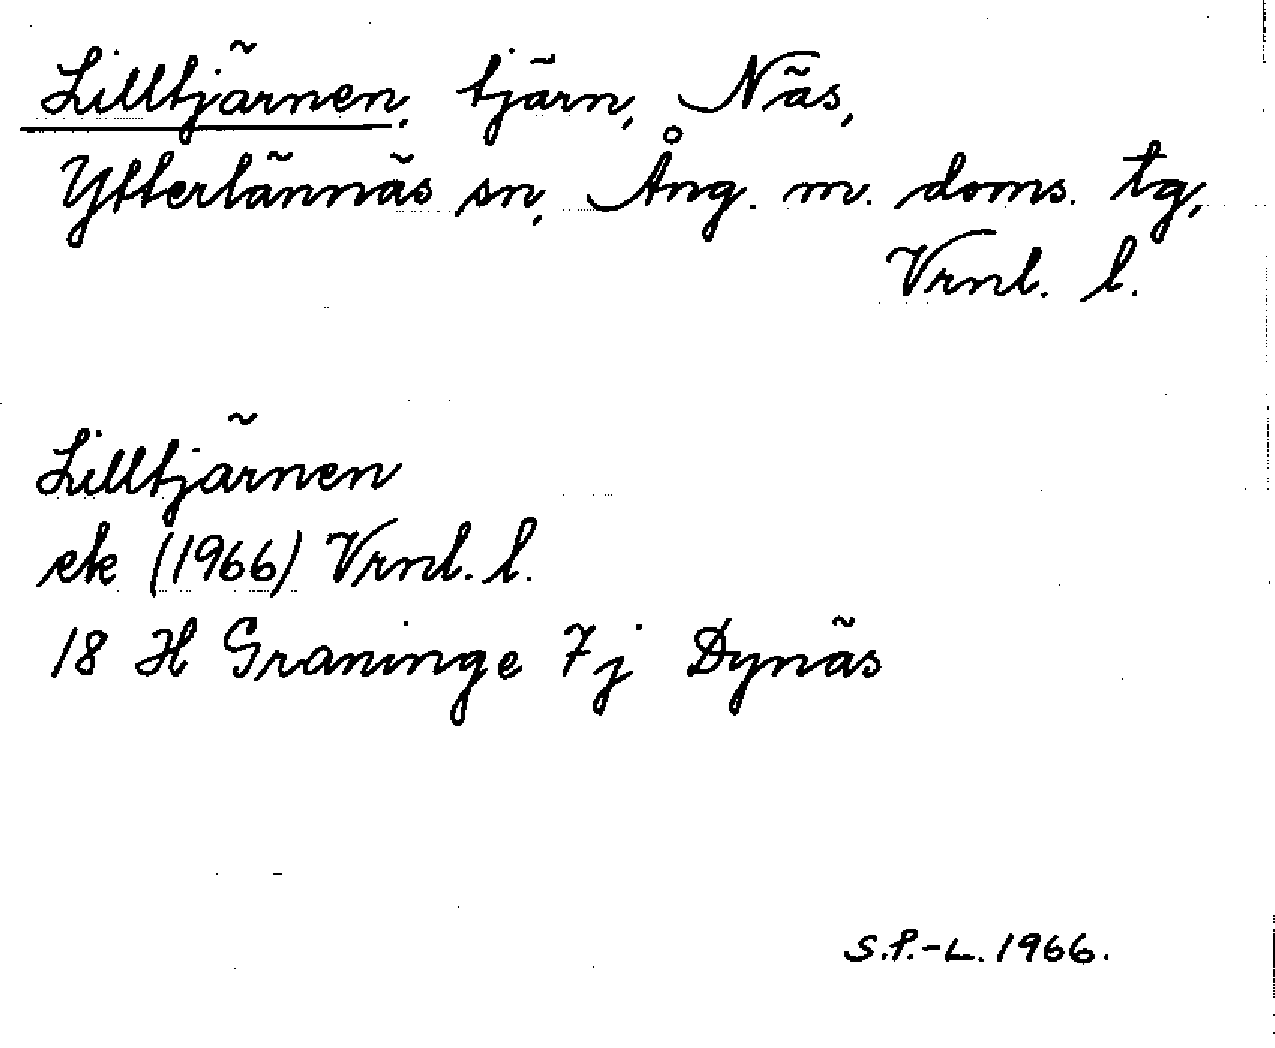 Lilltjärnen, tjärn, Näs,
Ytterlännäs sn, Ång. m. doms. tg,
Vrnl. l.
Lilltjärnen
ek (1966) Vrnl. l.
18 H Graninge 7j Dynäs
S.P.-L. 1966.